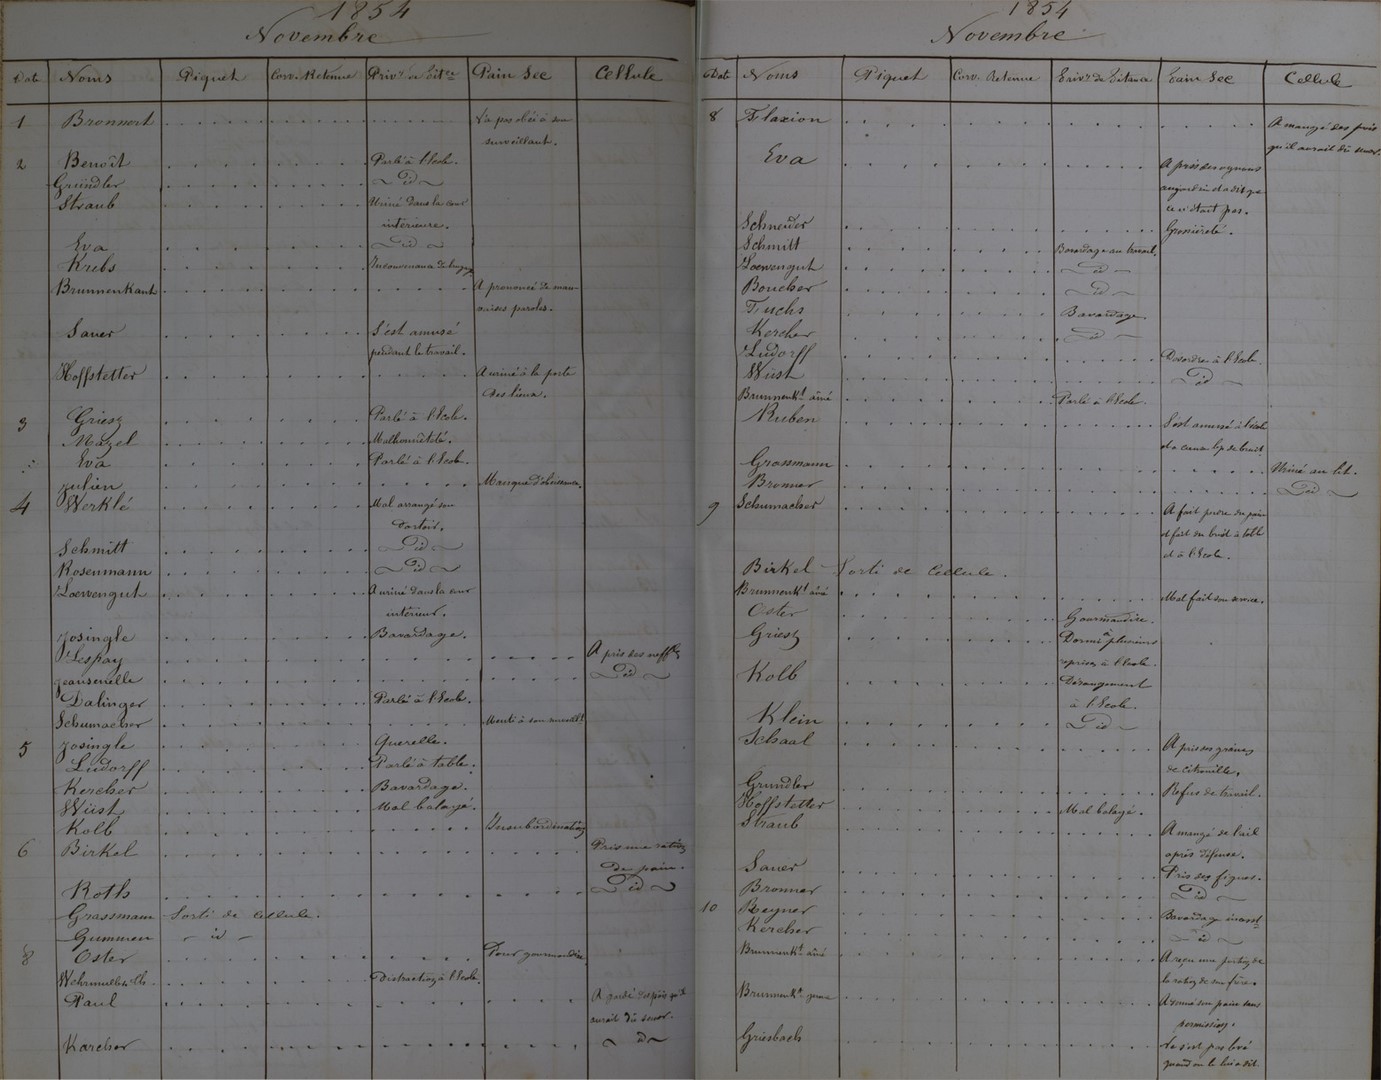 1854
Novembre
Date Noms Piquet Corv. Retenue Priv.n de Pit.ce Pain Sec Cellule
1 Bronnert N'a pas obéi à son
surveillant.
2 Benoît Parlé à l'école.
Gründler id
Straub Uriné dans la cour
intérieure.
Eva id
Krebs Inconvenance de langage
Brunnenkant A prononcé de mau-
vaises paroles.
Sauer S'est amusé
pendant le travail.
Hoffstetter A uriné à la porte
des lieux.
3 Griesz Parlé à l'école.
Mazel Malhonnêteté.
Eva Parlé à l'école.
Julien Manque d'obéissance.
4 Werklé Mal arrangé son
dortoir.
Schmitt id
Rosenmann id
Loewengut A uriné dans la cour
intérieur.
Josingle Bavardage.
Lespay A pris des
Jeansenelle id
Dalinger Parlé à l'école.
Schumacher Menti à son surveillt
5 Josingle Querelle.
Ludorff Parlé à table.
Kercher Bavardage.
Wüst Mal balayé.
Kolb Insubordination
6 Birkel Pris une ration
de pain.
Roth id
Grassmann Sorti de cellule.
Gummen id
8 Oster Pour gourmandise.
Paul Distraction à l'école.
A gardé des pois qu'il
aurait dû semer.
Karcher id
1854
Novembre
Date Noms Piquet Corv. Retenue Priv.n de Pitance Pain Sec Cellule
8 Flaxion A mangé des pois
qu'il aurait dû semer.
Eva A pris des oignons
aujourd'hui et a dit que
ce n'était pas.
Schneider Grossièreté.
Schmitt Bavardage au travail.
Loewengut id
Boucher id
Fuchs Bavardage.
Kercher id
Ludorff Désordre à l'école.
Wüst id
Brunnenkt aîné Parlé à l'école.
Ruben S'est amusé à l'école
et a causé bp de bruit
Grossmann Uriné au lit.
Bronner id
9 Schumacher A fait du pain
et fait du bruit à table
et à l'école.
Birkel Sorti de Cellule.
Brunnenkt aîné Mal fait son service.
Oster Gourmandise.
Griesz Dormi à plusieurs
reprises à l'école.
Kolb Dérangement
à l'école.
Klein id
Schaal A pris des graines
de citrouille.
Grundler Refus de travail.
Hoffstetter Mal balayé.
Straub A mangé de l'ail
après défense.
Sauer Pris des figues.
Bronner id
10 Reyner Bavardage incesst
Kercher id
Brunnenkt aîné A reçu une portion de
la ration de son frère.
Brunnenkt A donné son pain sans
permission.
Griesbach Ne s'est pas levé
quand on le lui a dit.